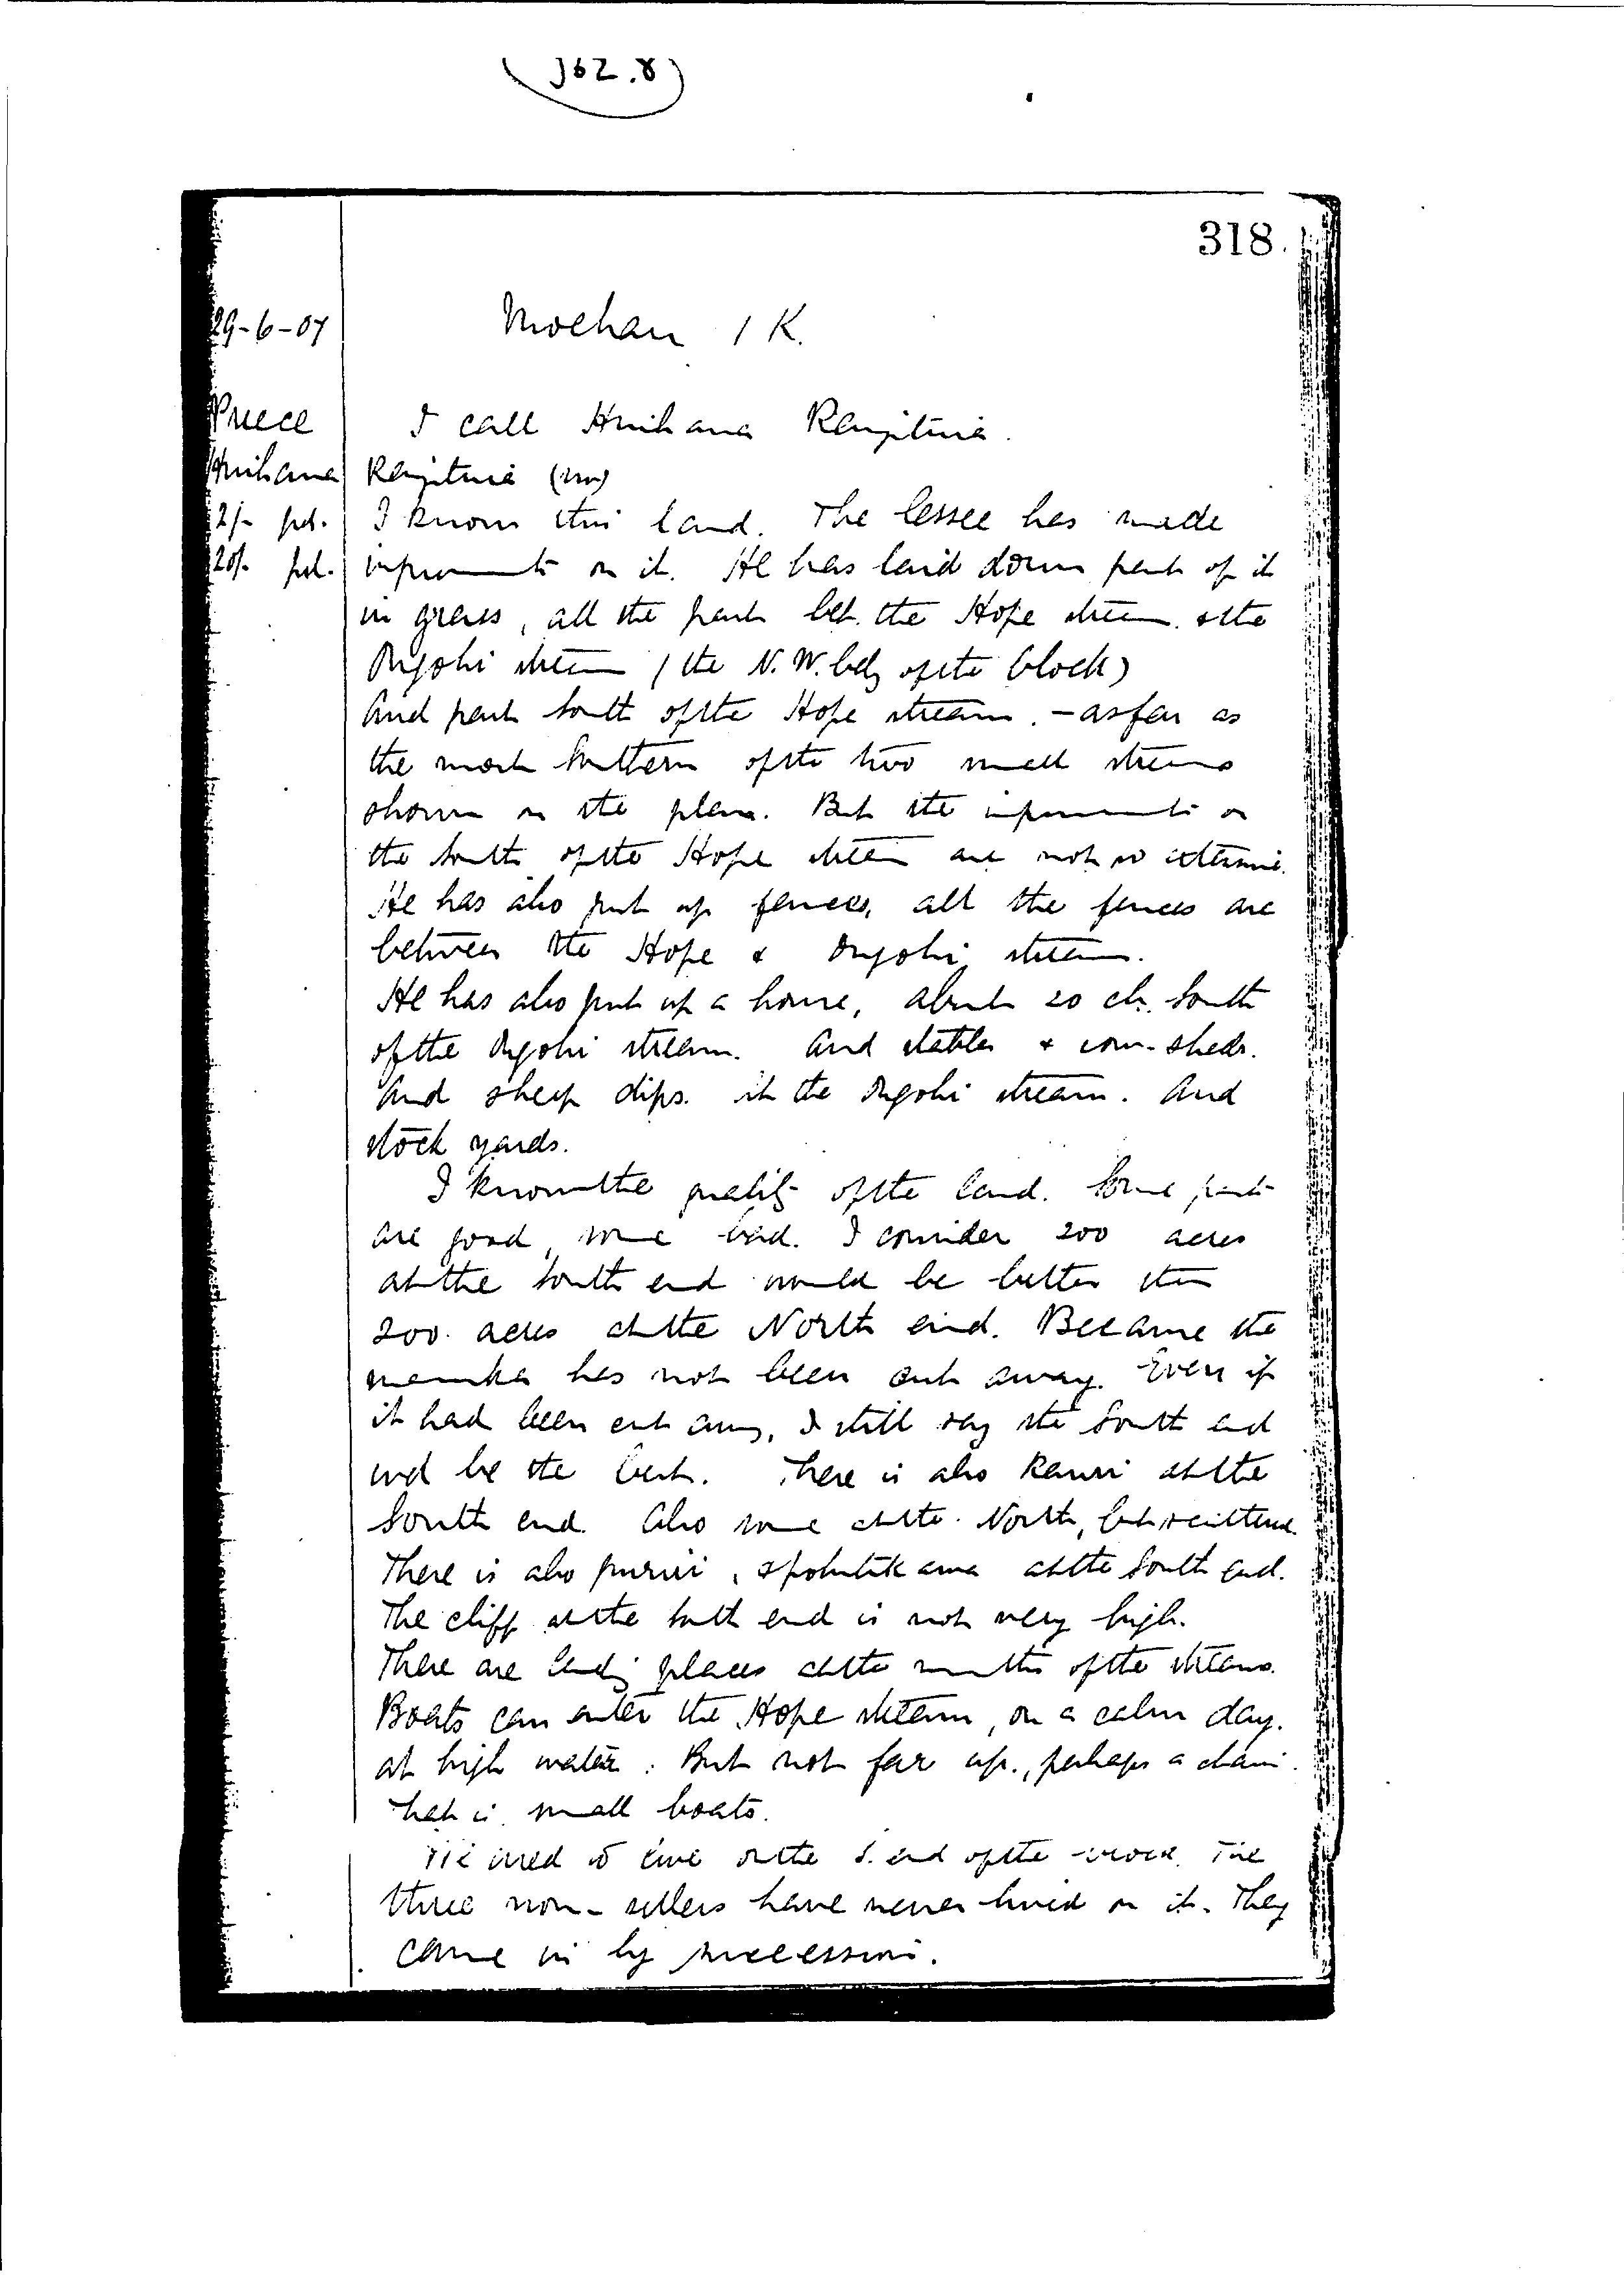 J62.8
318.
29-6-07
Moehau 1 K.
Preece
I call Huihana Rangituia.
Huihana
Rangituia (sw)
2/- pd.
I know this land. The lessee has made
20/- pd.
improvements on it. He has laid down part of it
in grass, all the part bet. the Hope stream & the
Ongohi stream (the N.W. bdy of the block)
And part South of the Hope stream. - as far as
the most Southern of the two small streams
shown on the plan. But the improvements on
the South of the Hope stream are not so extensive.
He has also put up fences, all the fences are
between the Hope & Ongohi stream.
He has also put up a house, about 20 ch. South
of the Ongohi stream. And stables & cow-sheds.
And sheep dips. at the Ongohi stream. And
stock yards.
I know the quality of the land. Some parts
are good, some bad. I consider 200 acres
at the South end would be better than
200. acres at the North end. Because the
manuka has not been cut away. Even if
it had been cut away, I still say the South end
wd be the best. There is also Kauri at the
South end. Also some at the North, but scattered.
There is also puriri, & pohutukawa at the South end.
The cliff at the South end is not very high.
There are landing places at the mouths of the streams.
Boats can enter the Hope stream, on a calm day.
at high water. But not far up., perhaps a chain.
That is small boats.
We used to live on the S. end of the block. The
three non-sellers have never lived on it. They
came in by succession.